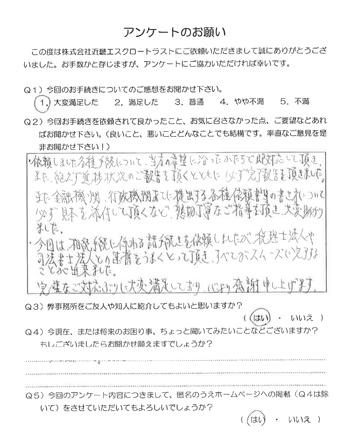 アンケートのお願い
この度は株式会社近畿エスクロートラストにご依頼いただきまして誠にありがとうござ
いました。お手数かと存じますが、アンケートにご協力いただければ幸いです。
Q1）今回のお手続きについてのご感想をお聞かせ下さい。
1．大変満足した　2，満足した　3，普通　4，やや不満　5，不満
Q2）今回お手続きを依頼されて良かったこと、お気に召さなかった点、ご要望などあれ
ばお聞かせ下さい。（良いこと、悪いことどんなことでも結構です。率直なご意見を是
非お聞かせ下さい！）
・依頼しました各種手続について、当方の希望に沿ったかたちで即対応して頂き、
また、絶えず進捗状況のご報告を頂くとともに、必ず完了報告を頂きました。
また金融機関、行政機関等に提出する各種依頼書等の書き方について
必ず見本を添付して頂くなど、懇切丁寧なご指導を頂き、大変助かり
ました。
・今回は相続手続に伴なう諸手続きを依頼しましたが、税理士法人や
司法書士法人との連携をうまくとって頂き、すべてがスムーズに完了する
ことが出来ました。
完璧なご対応ぶりに大変満足しており、心より感謝申し上げます。
Q3）弊事務所をご友人や知人に紹介してもよいと思いますか？
はい ・ いいえ
Q4）今現在、または将来のお困り事、ちょっと聞いてみたいことなどございますか？
もしございましたらお聞かせ願えますでしょうか？
Q5）今回のアンケート内容につきまして、匿名のうえホームページへの掲載（Q4は除
いて）をさせていただいてもよろしいでしょうか？
はい ・ いいえ